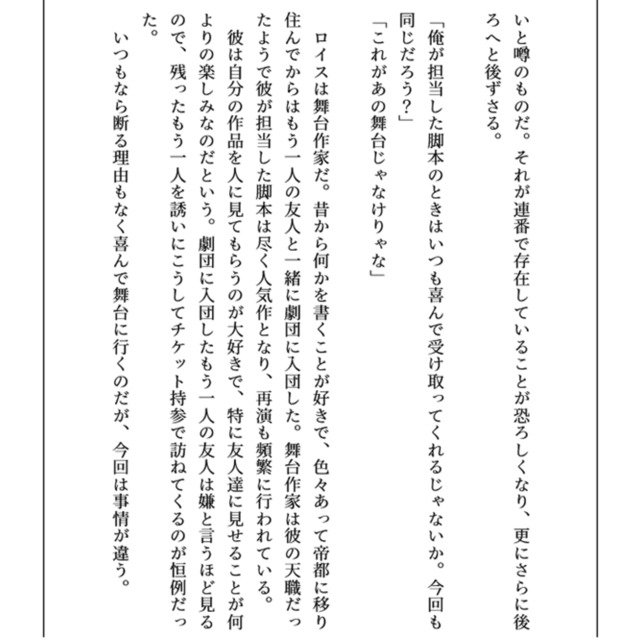 いと噂のものだ。それが連番で存在していることが恐ろしくなり、更にさらに後
ろへと後ずさる。
「俺が担当した脚本のときはいつも喜んで受け取ってくれるじゃないか。今回も
同じだろう？」
「これがあの舞台じゃなけりゃな」
ロイスは舞台作家だ。昔から何かを書くことが好きで、色々あって帝都に移り
住んでからはもう一人の友人と一緒に劇団に入団した。舞台作家は彼の天職だっ
たようで彼が担当した脚本は尽く人気作となり、再演も頻繁に行われている。
彼は自分の作品を人に見てもらうのが大好きで、特に友人達に見せることが何
よりの楽しみなのだという。劇団に入団したもう一人の友人は嫌と言うほど見る
ので、残ったもう一人を誘いにこうしてチケット持参で訪ねてくるのが恒例だっ
た。
いつもなら断る理由もなく喜んで舞台に行くのだが、今回は事情が違う。